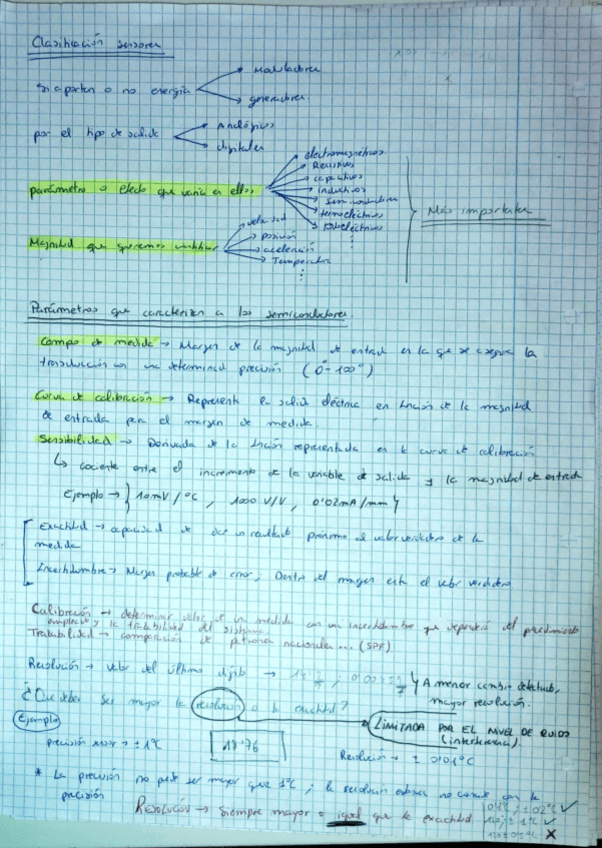 Clasificación sensores
Si aportan o no energía
Moduladores
generadores.
por el tipo de salida
Analógicos
digitales
parámetro o efecto que varia en ellos
electromagnéticos
Resistivos
capacitivos
inductivos
Semiconductores
termoeléctricos
Más importantes
Magnitud que queremos
velocidad
posición
aceleración
Temperatura
Parámetros que caracterizan a los semiconductores.
Campo de medida → Margen de la magnitud de entrada en la que se asegura la
transducción con una determinada precisión (0°-100°)
Curva de calibración → Representa la salida eléctrica en función de la magnitud
de entrada para el margen de medida.
Sensibilidad → Derivada de la función representada en la curva de calibración
↳ cociente entre el incremento de la variable de salida y la magnitud de entrada
Ejemplo → { 10mV/°C , 1000 V/V , 0'02mA/mm }
Exactitud → capacidad de dar un resultado próximo al valor verdadero de la
medida
Incertidumbre → Margen probable de error, Dentro del margen está el valor verdadero
Calibración → determinar valor de una medida con una incertidumbre que dependerá del procedimiento
empleado y la trazabilidad del sistema
Trazabilidad → comparación de patrones nacionales ... (SPF)
Resolución → valor del último dígito →
A menor cambio detectado,
mayor resolución.
¿Que debe ser mayor la resolución o la exactitud?
LIMITADA POR EL NIVEL DE RUIDO
(interferencia).
Ejemplo
precisión → ± 1°C
19'76
Resolución → ± 0'01°C
* La precisión no puede ser mayor que 1°C ; la resolución no con la
precisión
Resolución → Siempre mayor o igual que la exactitud
✓
± 1°C ✓
X